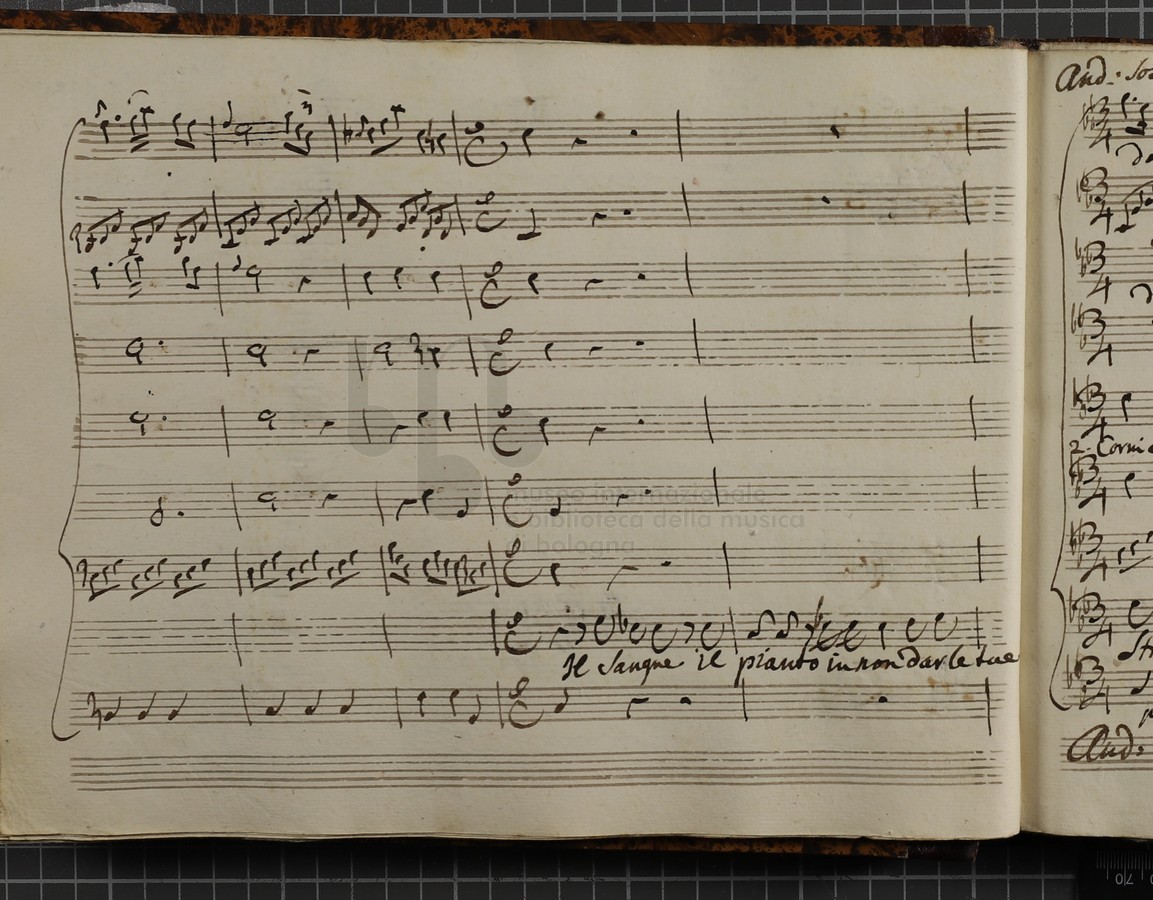 Il Sangue il pianto in non dar le tue
And:
2. Corni
And:
museo internazionale
biblioteca della musica
di bologna
70